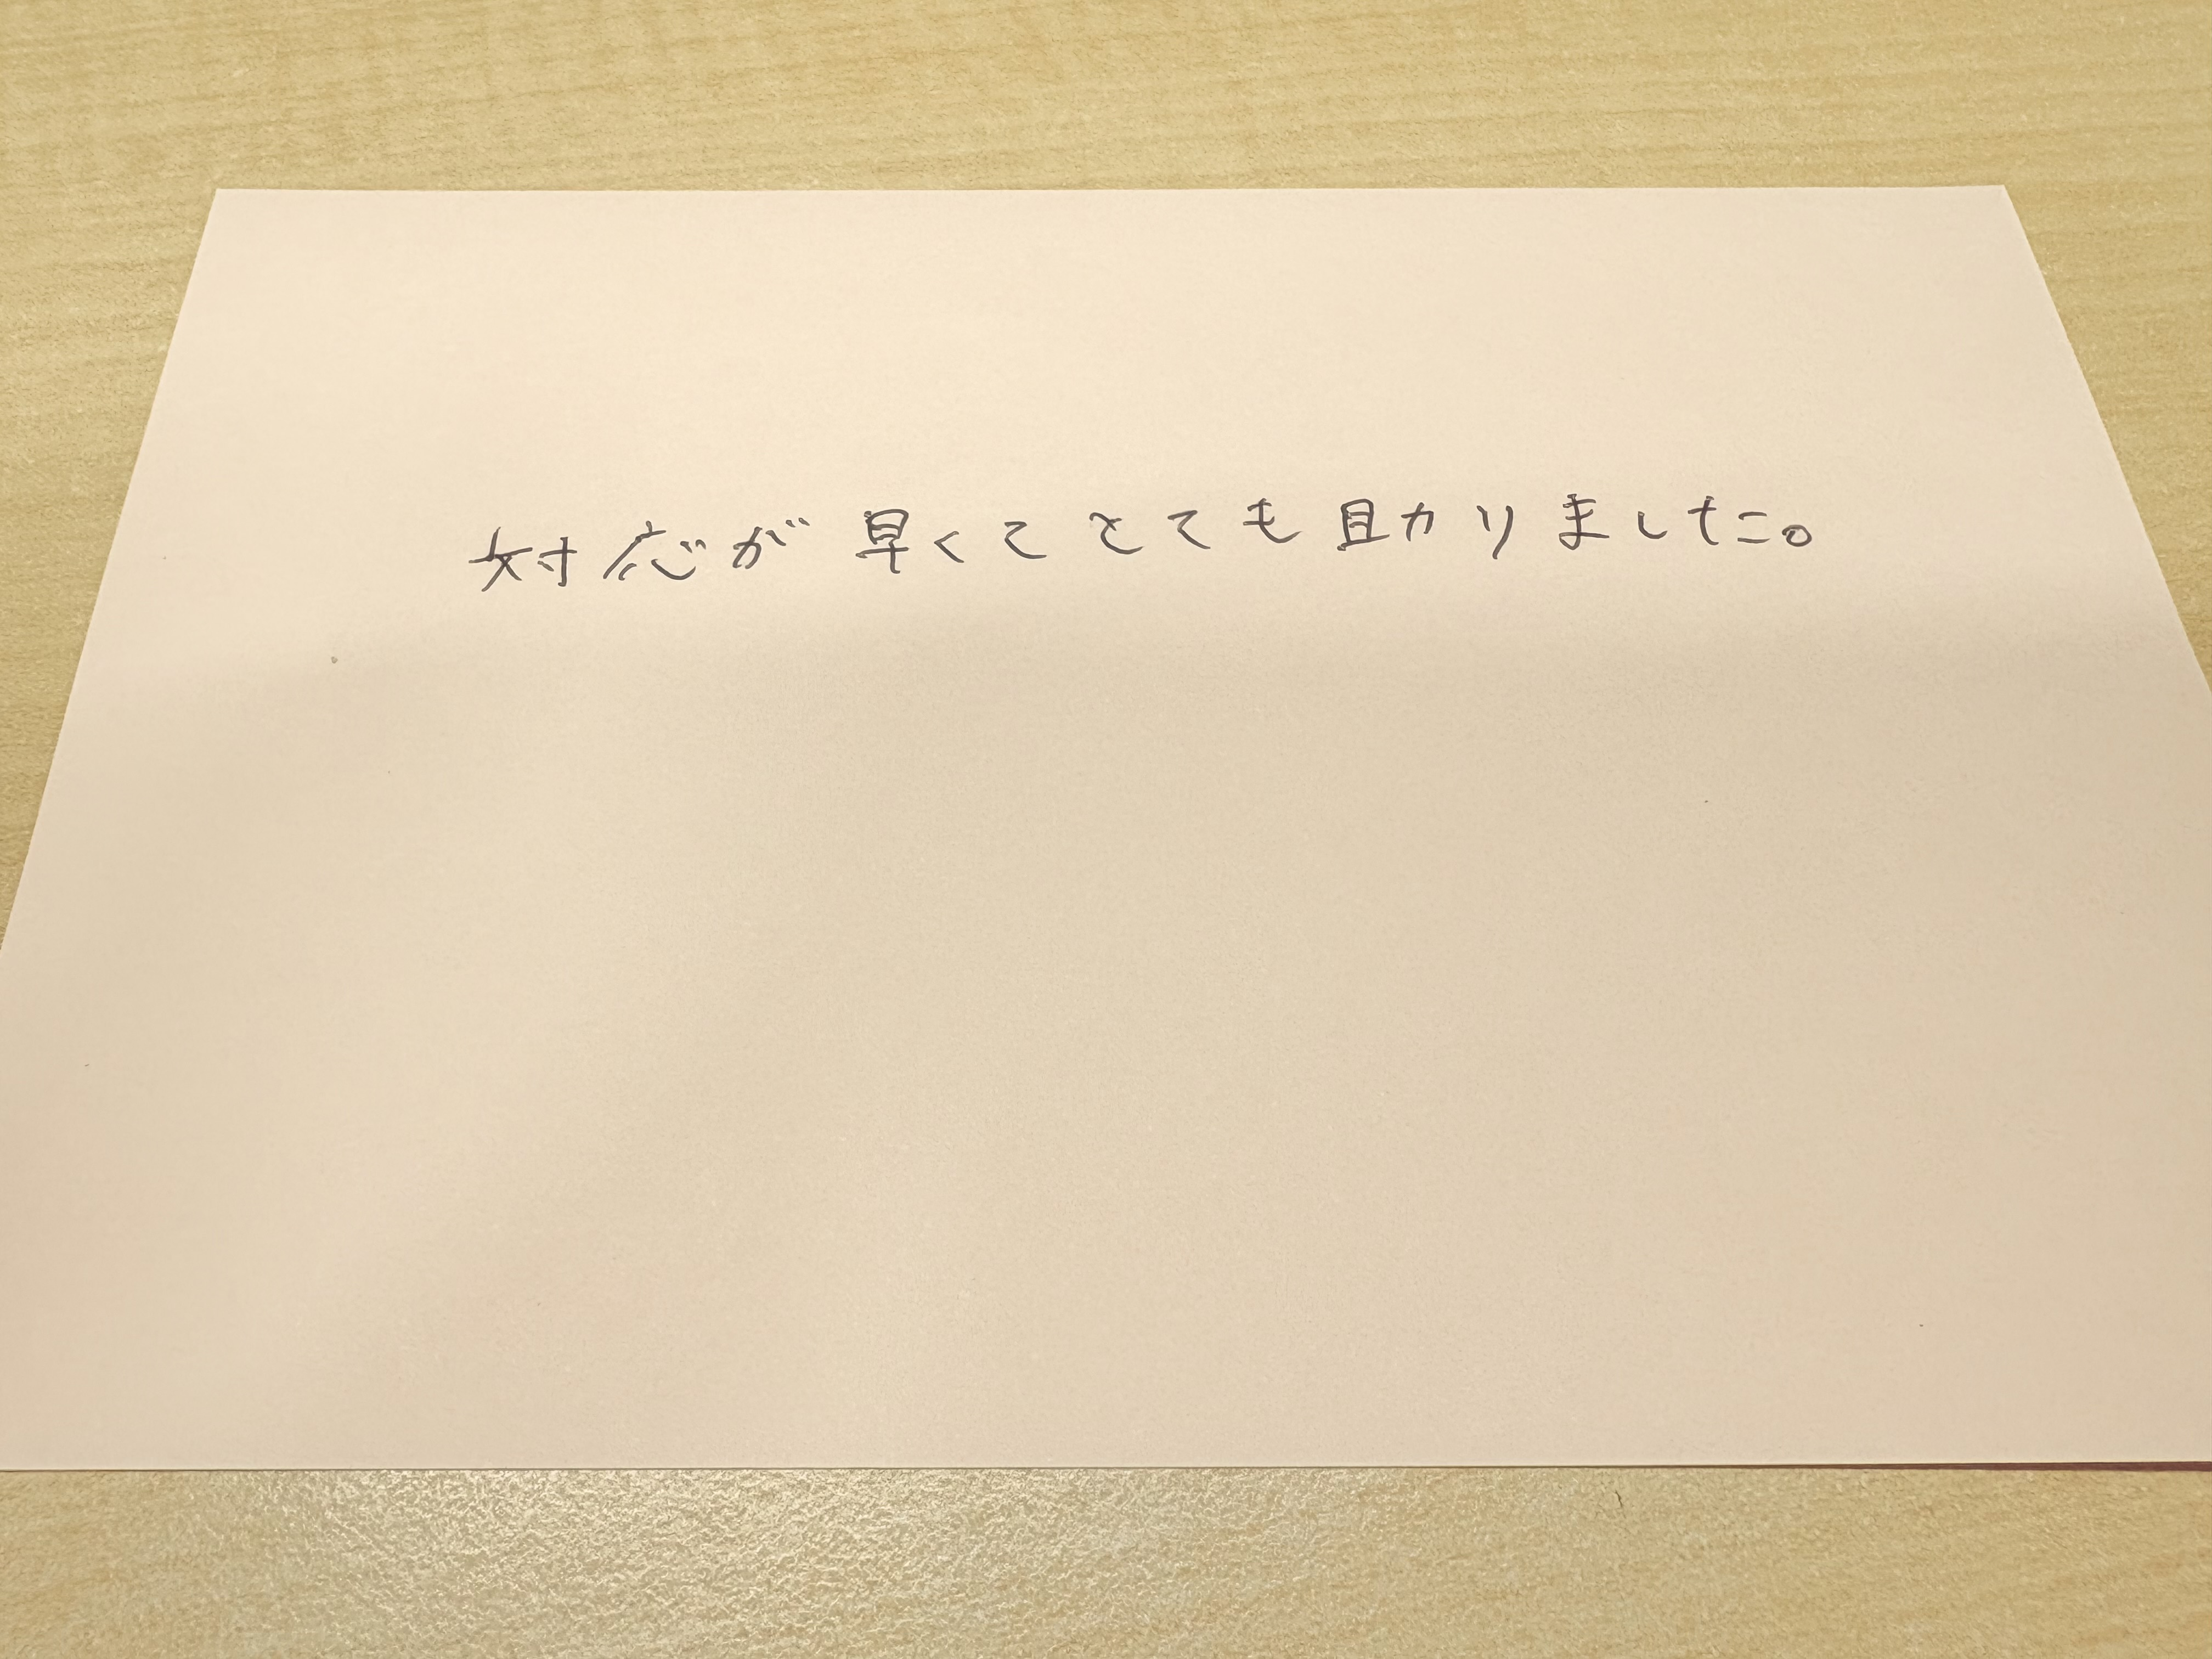 対応が早くてとても助かりました。